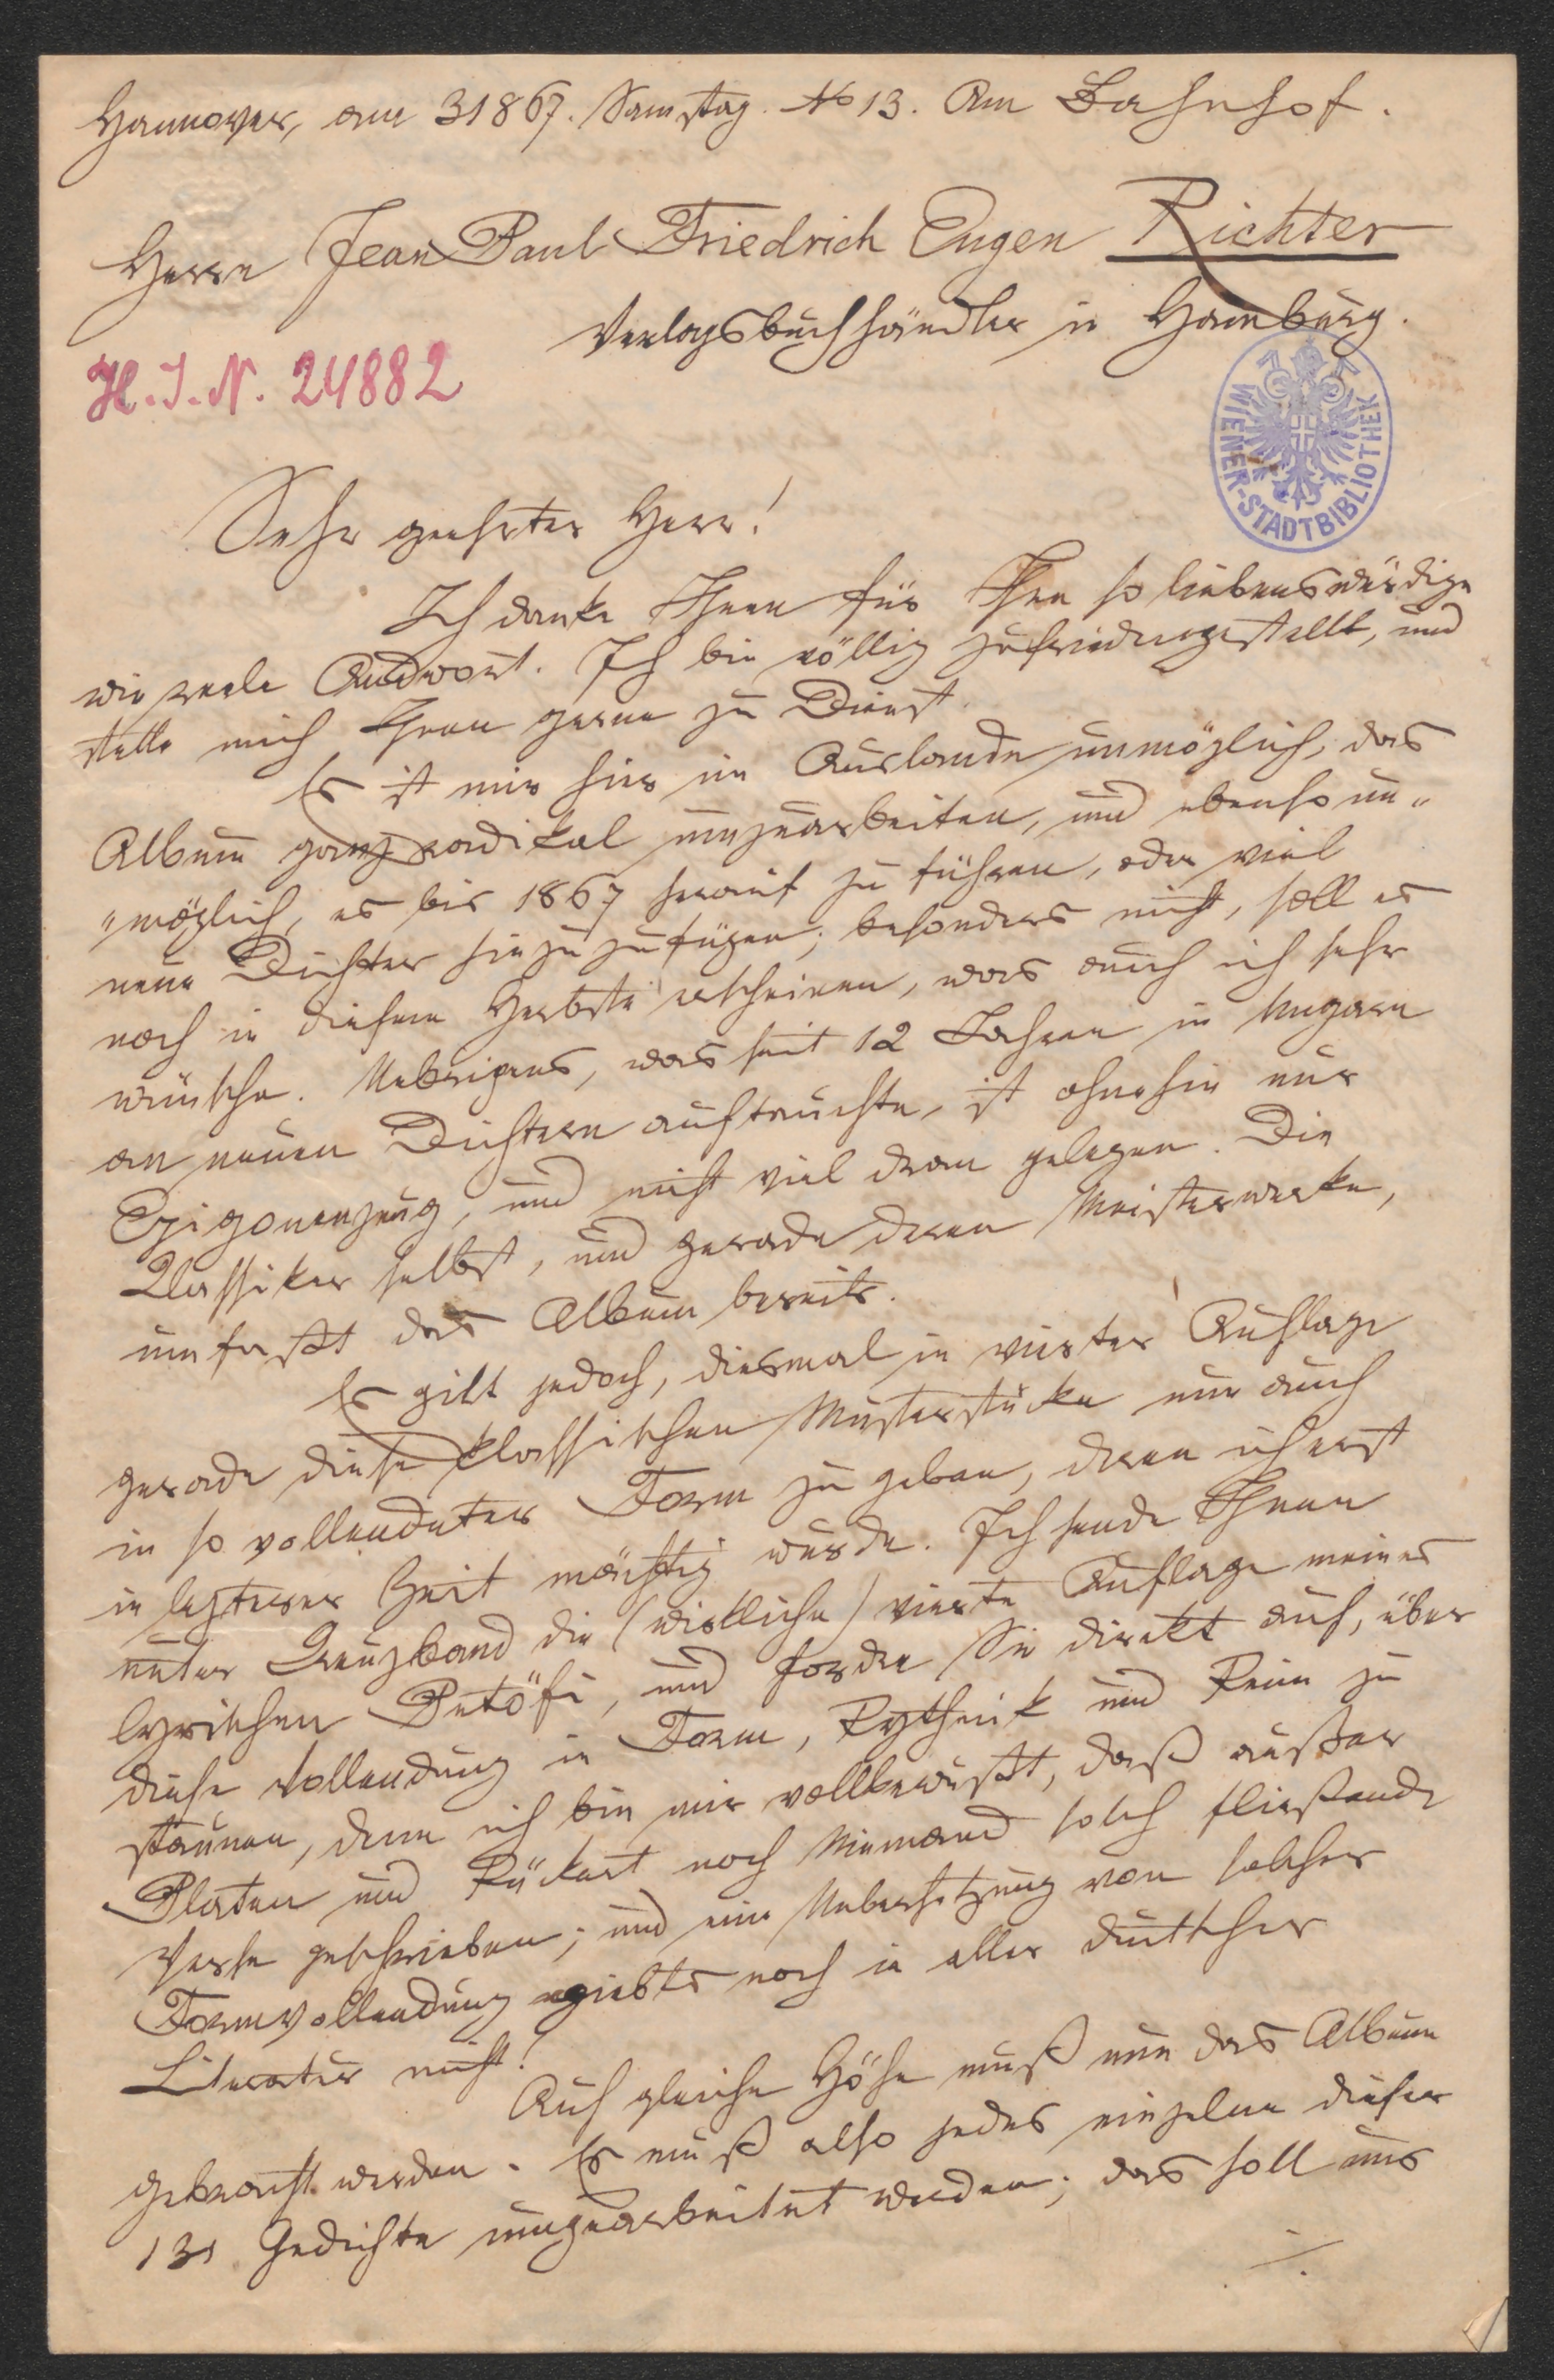 Hannover, am 31867. Samstag. No 13. Am Bahnhof.
Herrn Jean Paul Friedrich Eugen Richter
Verlagsbuchhändler in Hamburg.
H.I.N. 24882
WIENER-STADTBIBLIOTHEK
Sehr geehrter Herr!
Ich danke Ihnen für Ihre so liebenswürdige
wie reele Antwort. Ich bin völlig zufriedengestellt, und
stelle mich Ihnen gerne zu Dienst.
Es ist mir hier im Auslande unmöglich, das
Album ganz radikal umzuarbeiten, und ebenso un„
„möglich, es bis 1867 herauf zu führen, oder viel
neue Dichter hinzu zu fügen; besonders nicht, soll es
noch in diesem Herbste erscheinen, was auch ich sehr
wünsche. Uebrigens, was seit 12 Jahren in Ungarn
an neuen Dichtern auftauchte, ist ohnehin nur
Epigonenzeug, und nicht viel dran gelegen. Die
Classiker selbst, und gerade deren Meisterwerke,
umfaßt das Album bereits.
Es gilt jedoch, diesmal in vierter Auflage
gerade diese klassischen Musterstücke nun auch
in so vollendeter Form zu geben, deren ich erst
in letzterer Zeit mächtig wurde. Ich sende Ihnen
unter Kreuzband die (wirkliche) vierte Auflage meines
lyrischen Petöfi, und fordre Sie direkt auf, über
diese Vollendung in Form, Rythmik und Reim zu
staunen, denn ich bin mir vollbewußt, daß außer
Platen und Rückert noch Niemand solch fließende
Verse geschrieben; und eine Uebersetzung von solcher
Formvollendung giebts noch in aller deutscher
Literatur nicht!
Auf gleiche Höhe muß nun das Album
gebracht werden. Es muß also jedes einzelne dieser
131 Gedichte umgearbeitet werden; das soll uns
./.